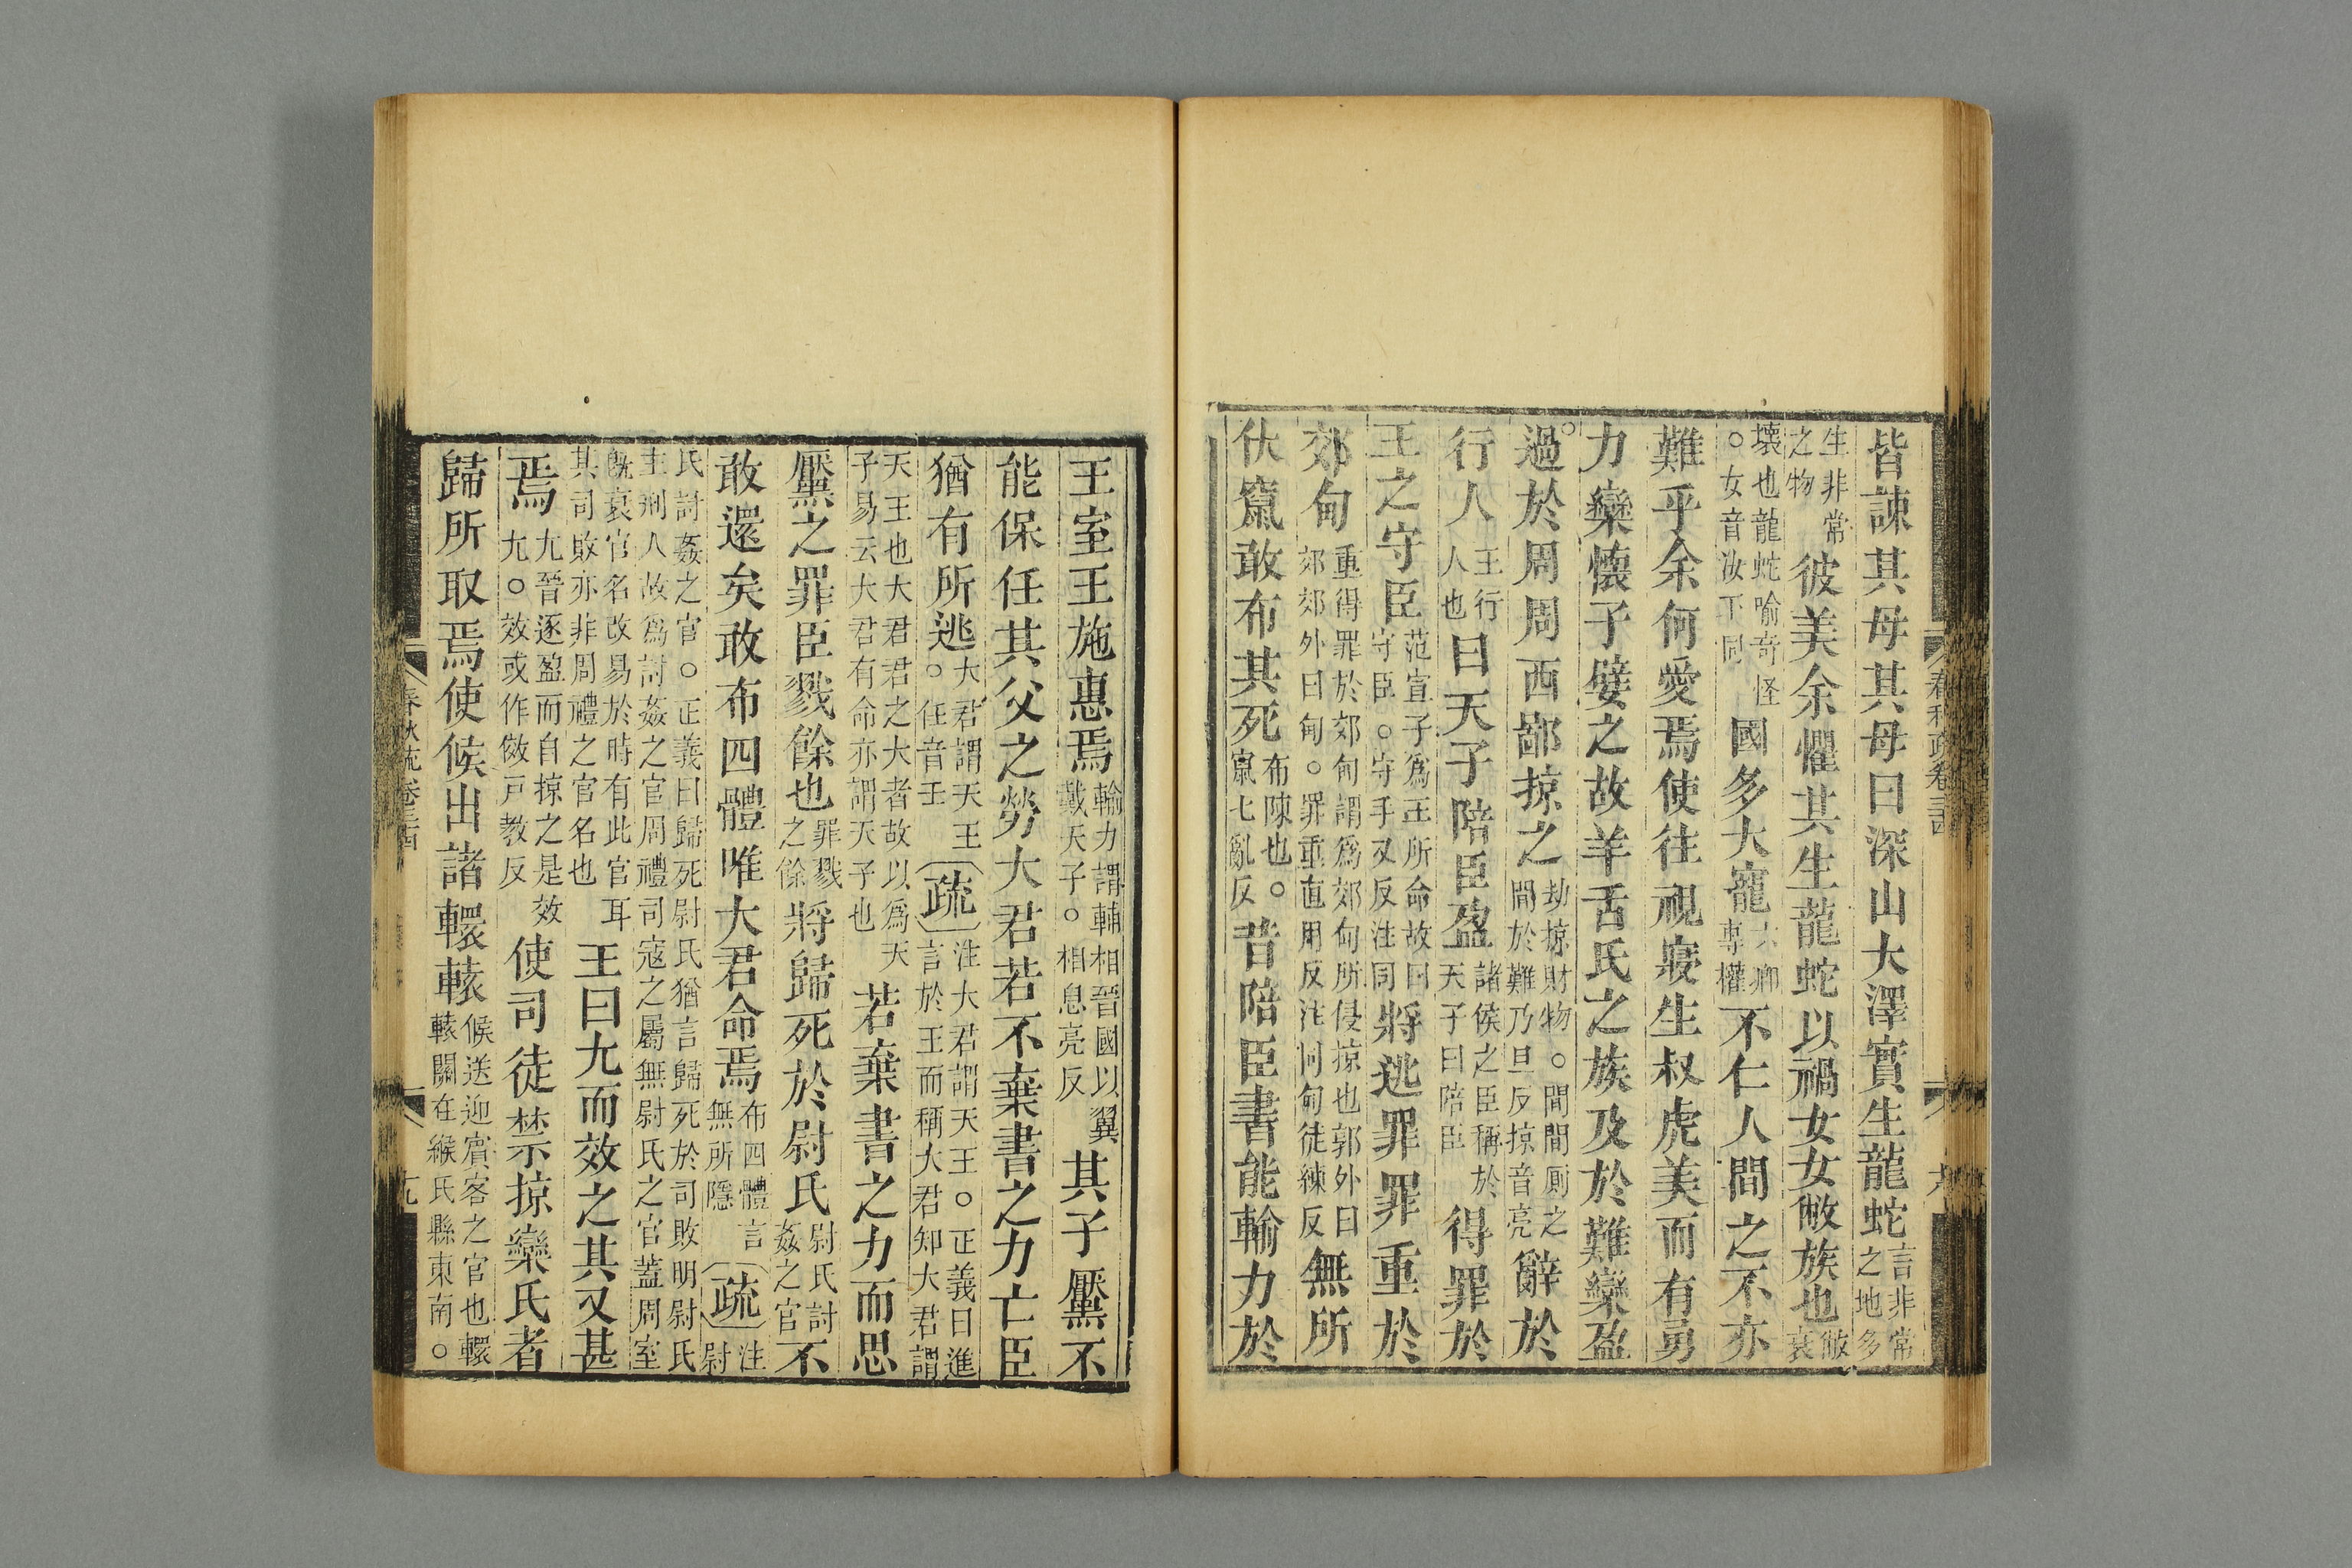 皆諫其母其母曰深山大澤實生龍蛇言非常之地多
生非常之物彼美余懼其生龍蛇以禍女女敝族也敝衰
壞也龍蛇喻奇怪。女音汝下同國多大寵六卿專權不仁人間之不亦
難乎余何愛焉使往視寢生叔虎美而有勇
力欒懷子嬖之故羊舌氏之族及於難欒盈
○過於周周西鄙掠之劫掠財物。間間厠之間於難乃旦反掠音亮辭於
行人王行人也曰天子陪臣盈諸侯之臣稱於天子曰陪臣得罪於
王之守臣范宣子爲王所命故曰守臣。守手又反注同將逃罪罪重於
郊甸重得罪於郊甸謂爲郊甸所侵掠也郭外曰郊郊外曰甸。罪重直用反注同甸徒練反無所
伏竄敢布其死布陳也。竄七亂反昔陪臣書能輸力於
王室王施惠焉輸力謂輔相晉國以翼戴天子。相息亮反其子黶不
能保任其父之勞大君若不棄書之力亡臣
猶有所逃大君謂天王。任音壬疏注大君謂天王。正義曰進言於王而稱大君知大君謂
天王也大君君之大者故以爲天子易云大君有命亦謂天子也若棄書之力而思
黶之罪臣戮餘也罪戮之餘將歸死於尉氏尉氏討姦之官不
敢還矣敢布四體唯大君命焉布四體言無所隱疏注尉
氏討姦之官。正義曰歸死尉氏猶言歸死於司敗明尉氏主刑人故爲討姦之官周禮司寇之屬無尉氏之官蓋周室
旣衰官名改易於時有此官耳其司敗亦非周禮之官名也王曰尤而效之其又甚
焉尤晉逐盈而自掠之是效尤。效或作傚戸教反使司徒禁掠欒氏者
歸所取焉使候出諸轘轅候送迎賓客之官也轘轅關在緱氏縣東南。
春秋疏卷三十四
九